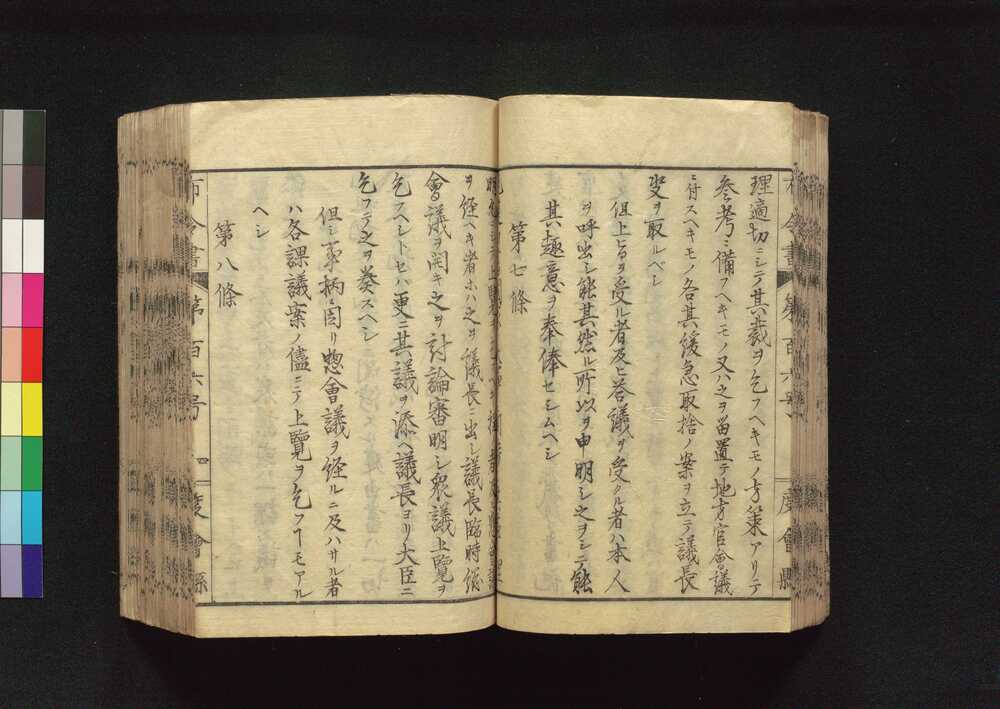 布令書 第百六号 度會縣
理適切ニシテ其裁ヲ乞フヘキモノ方策アリテ
参考ニ備フヘキモノ又ハ之ヲ留置テ地方官會議
ニ付スヘキモノ各其緩急取捨ノ案ヲ立テ議長
ノ決ヲ取ルベシ
但上旨ヲ受ル者及ヒ答議ヲ受クル者ハ本人
ヲ呼出シ能其然ル所以ヲ申明シ之ヲシテ能
其趣意ヲ奉俸セシムヘシ
第七條
ヲ經ヘキ者ホハ之ヲ議長ニ出シ議長臨時總
會議ヲ開キ之ヲ討論審明シ衆議上覽ヲ
乞フヘシトセハ更ニ其議ヲ添ヘ議長ヨリ大臣ニ
乞フテ之ヲ奏スヘシ
但シ事柄ニ因リ惣會議ヲ經ルニ及ハサル者
ハ各課議案ノ儘ニテ上覽ヲ乞フヿモアル
ヘシ
第八條
布令書 第百六号 四 度會縣